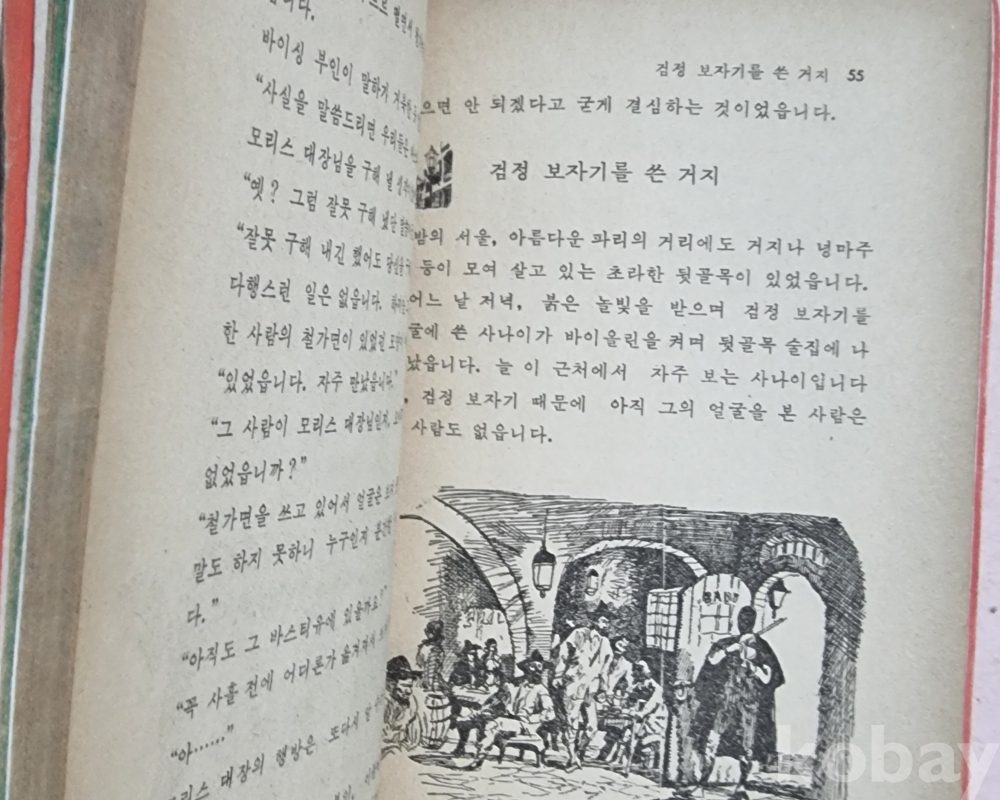 니다.
바이싱 부인이 말하기
“사실을 말씀드리면 우리들은
모리스 대장님을 구해 낼
“옛? 그럼 잘못 구해 냈단
“잘못 구해 내긴 했어도
다행스런 일은 없읍니다.
한 사람의 철가면이 있었던
“있었읍니다. 자주 만났읍니다.”
“그 사람이 모리스 대장님인지,
없었읍니까?”
“철가면을 쓰고 있어서 얼굴은
말도 하지 못하니 누구인지
다.”
“아직도 그 바스티유에 있을까요?”
“꼭 사흘 전에 어디론가
“아……”
모리스 대장의 행방은 또다시
검정 보자기를 쓴 거지 55
으면 안 되겠다고 굳게 결심하는 것이었읍니다.
검정 보자기를 쓴 거지
밤의 서울, 아름다운 파리의 거리에도 거지나 넝마주
둥이 모여 살고 있는 초라한 뒷골목이 있었읍니다.
어느 날 저녁, 붉은 놀빛을 받으며 검정 보자기를
굴에 쓴 사나이가 바이올린을 켜며 뒷골목 술집에 나
났읍니다. 늘 이 근처에서 자주 보는 사나이입니다
, 검정 보자기 때문에 아직 그의 얼굴을 본 사람은
사람도 없읍니다.
kobay